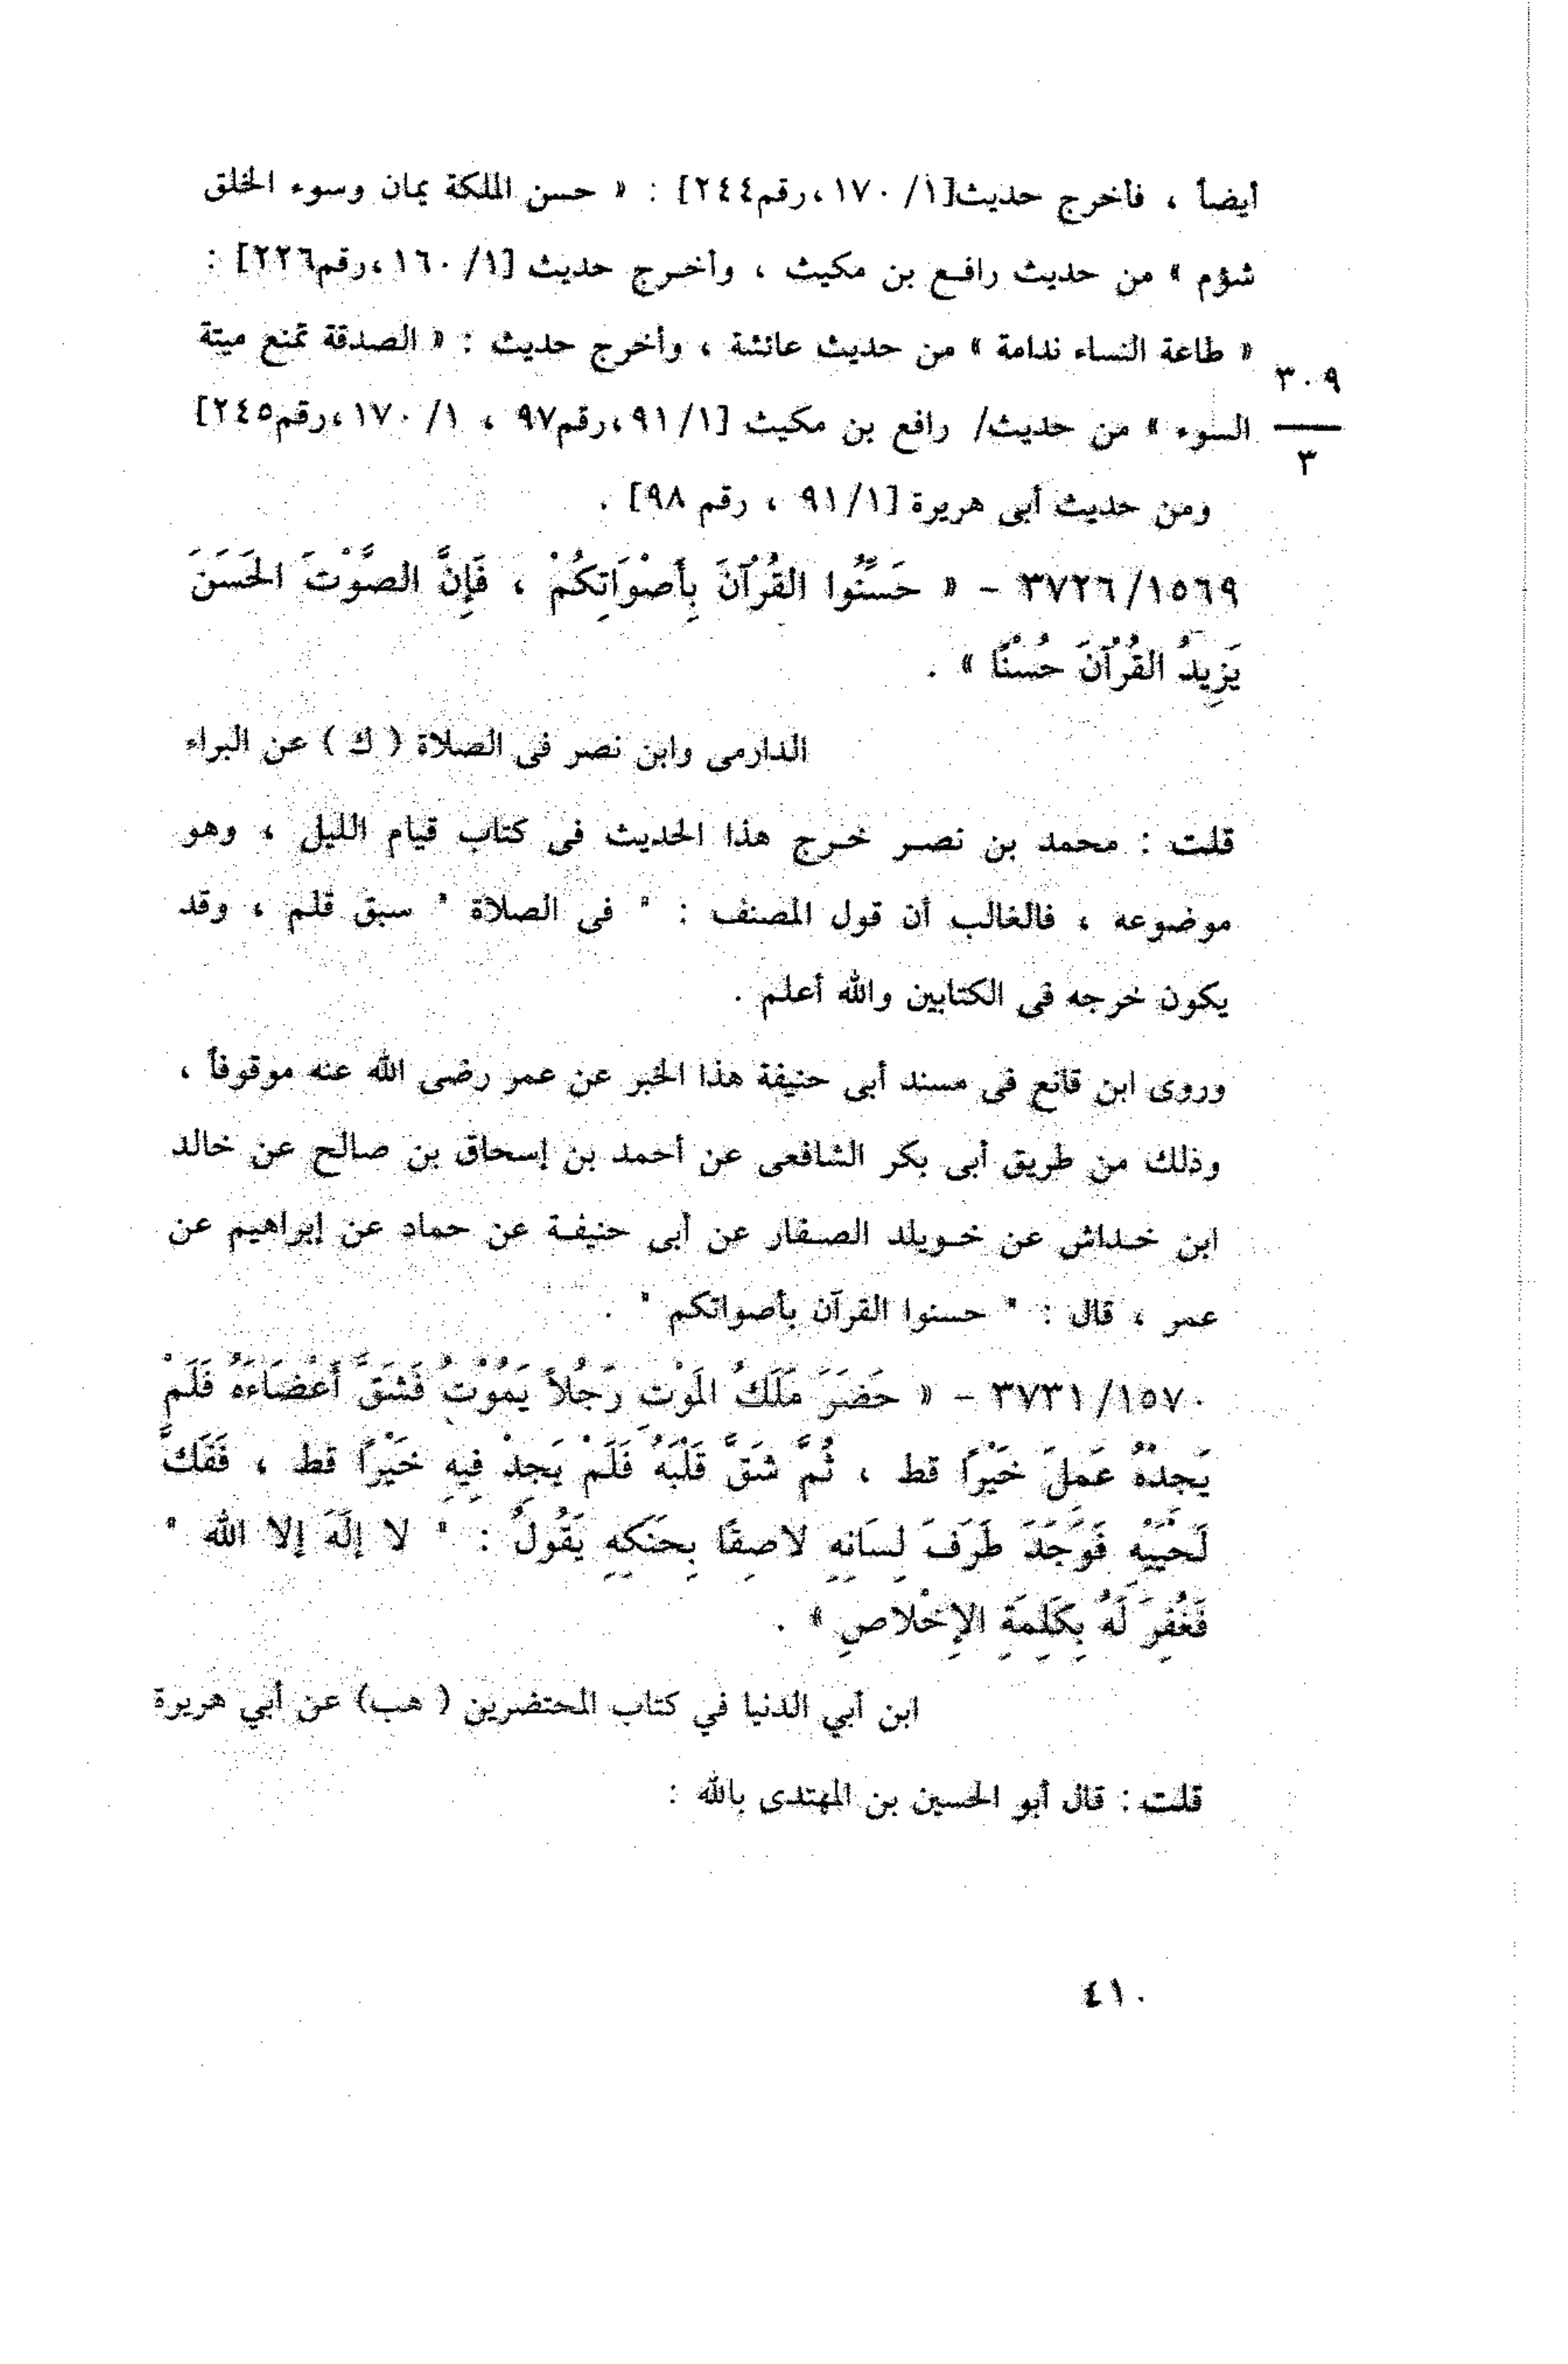 أيضاً ، فأخرج حديث[١/ ١٧٠،رقم٢٤٤] : « حسن الملكة يمان وسوء الخلق
شؤم » من حديث رافع بن مكيث ، وأخرج حديث [١/ ١٦٠،رقم٢٢٦] :
« طاعة النساء ندامة » من حديث عائشة ، وأخرج حديث : « الصدقة تمنع ميتة
٣٠٩
السوء » من حديث/ رافع بن مكيث [٩١/١،رقم٩٧ ، ١/ ١٧٠،رقم٢٤٥]
٣
ومن حديث أبى هريرة [٩١/١ ، رقم ٩٨] .
٣٧٢٦/١٥٦٩ - « حَسِّنُوا القُرْآنَ بِأَصْوَاتِكُمْ ، فَإِنَّ الصَّوْتَ الحَسَنَ
يَزِيدُ القُرْآنَ حُسْنًا » .
الدارمى وابن نصر فى الصلاة ( ك ) عن البراء
قلت : محمد بن نصر خرج هذا الحديث فى كتاب قيام الليل ، وهو
موضوعه ، فالغالب أن قول المصنف : " فى الصلاة " سبق قلم ، وقد
يكون خرجه فى الكتابين والله أعلم .
وروى ابن قانع فى مسند أبى حنيفة هذا الخبر عن عمر رضى الله عنه موقوفاً ،
وذلك من طريق أبى بكر الشافعى عن أحمد بن إسحاق بن صالح عن خالد
ابن خداش عن خويلد الصفار عن أبى حنيفة عن حماد عن إبراهيم عن
عمر ، قال : " حسنوا القرآن بأصواتكم " .
٣٧٣١/١٥٧٠ - « حَضَرَ مَلَكُ المَوْتِ رَجُلاً يَمُوْتُ فَشَقَّ أَعْضَاءَهُ فَلَمْ
يَجِدْهُ عَمِلَ خَيْرًا قط ، ثُمَّ شَقَّ قَلْبَهُ فَلَمْ يَجِدْ فِيهِ خَيْرًا قط ، فَفَكَّ
لَحْيَيْهِ فَوَجَدَ طَرَفَ لِسَانِهِ لاصِقًا بِحَنَكِهِ يَقُولُ : " لا إلَهَ إلا الله "
فَغُفِرَ لَهُ بِكَلِمَةِ الإِخْلاصِ » .
ابن أبي الدنيا في كتاب المحتضرين ( هب) عن أبي هريرة
قلت : قال أبو الحسين بن المهتدى بالله :
٤١٠